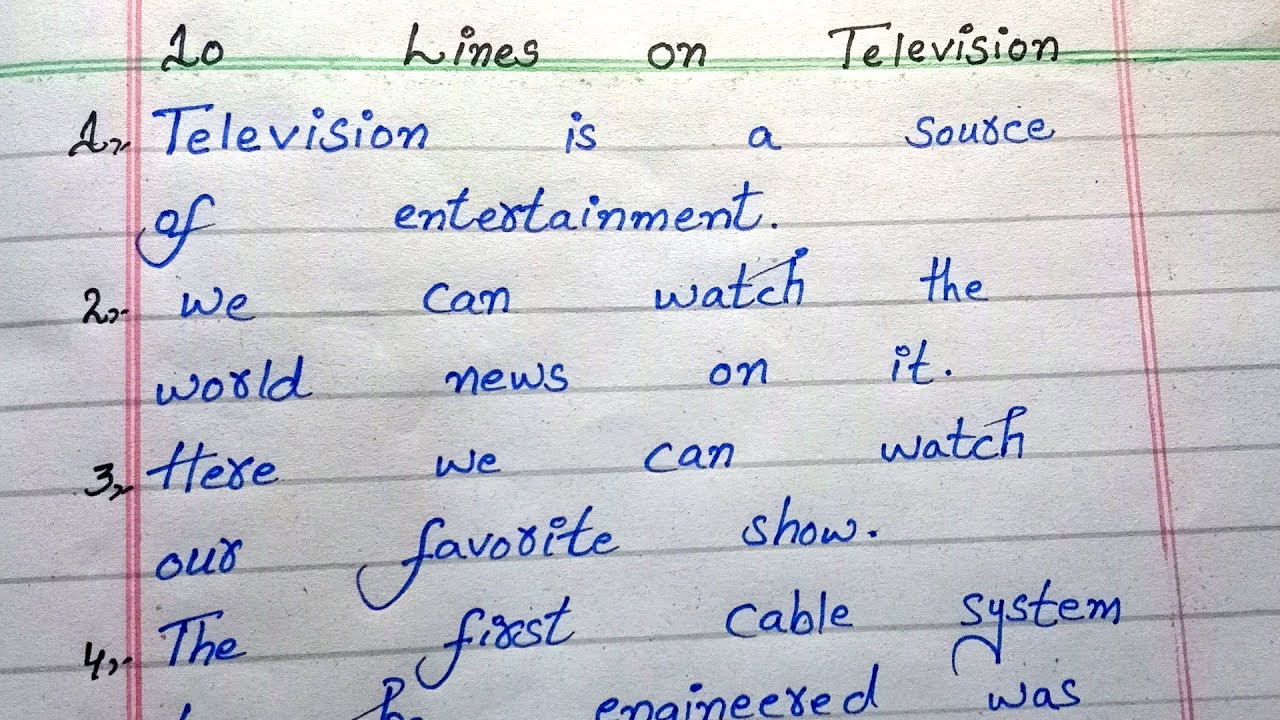 10 Lines on Television
1. Television is a source
of entertainment.
2. we can watch the
world news on it.
3. Here we can watch
our favorite show.
4. The first cable system
engineered was